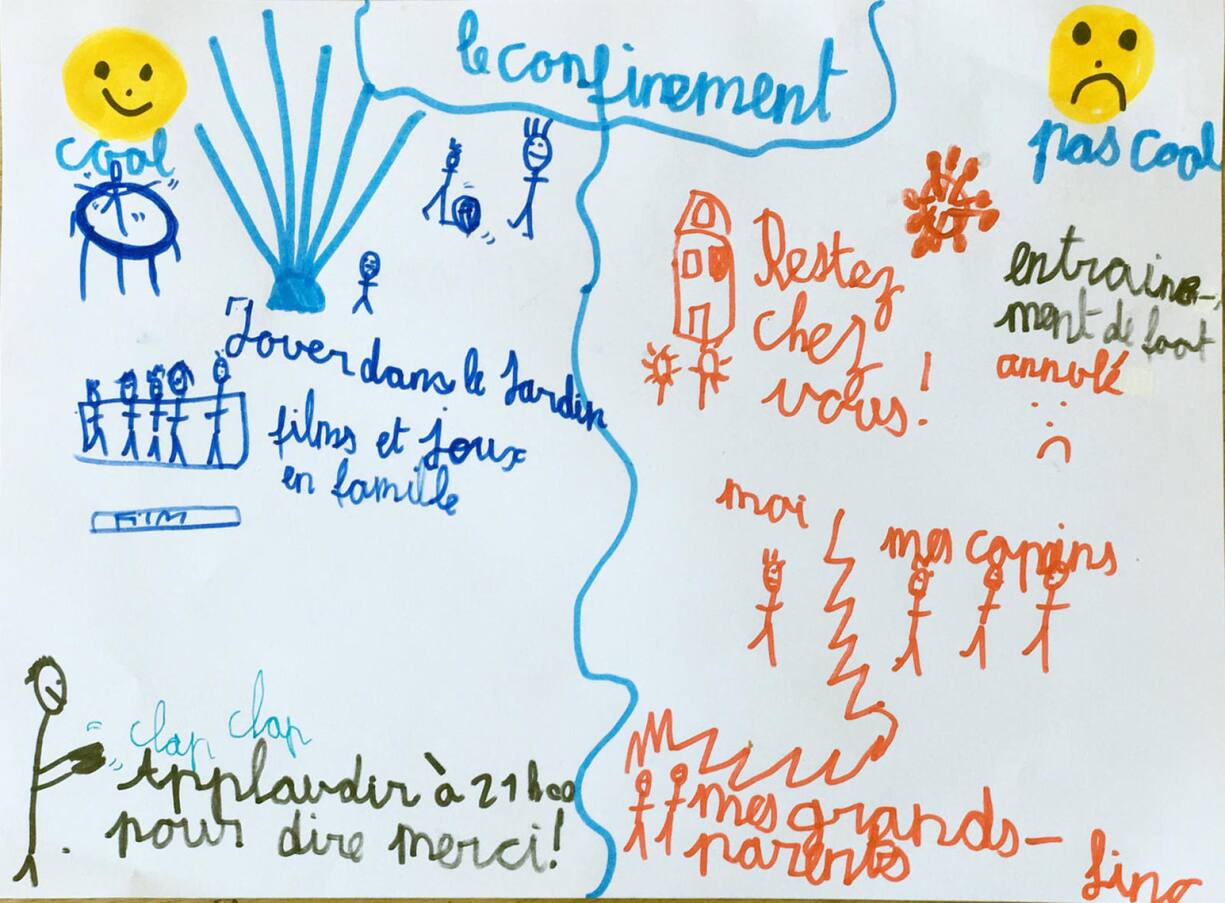 le confinement
cool
Jouer dans le Jardin
films et joux
en famille
FILM
clap clap
Applaudir à 21h00
pour dire merci!
pas cool
Restez
chez
vous!
entraine-
ment de foot
annulé
moi
mes copains
mes grands-
parents